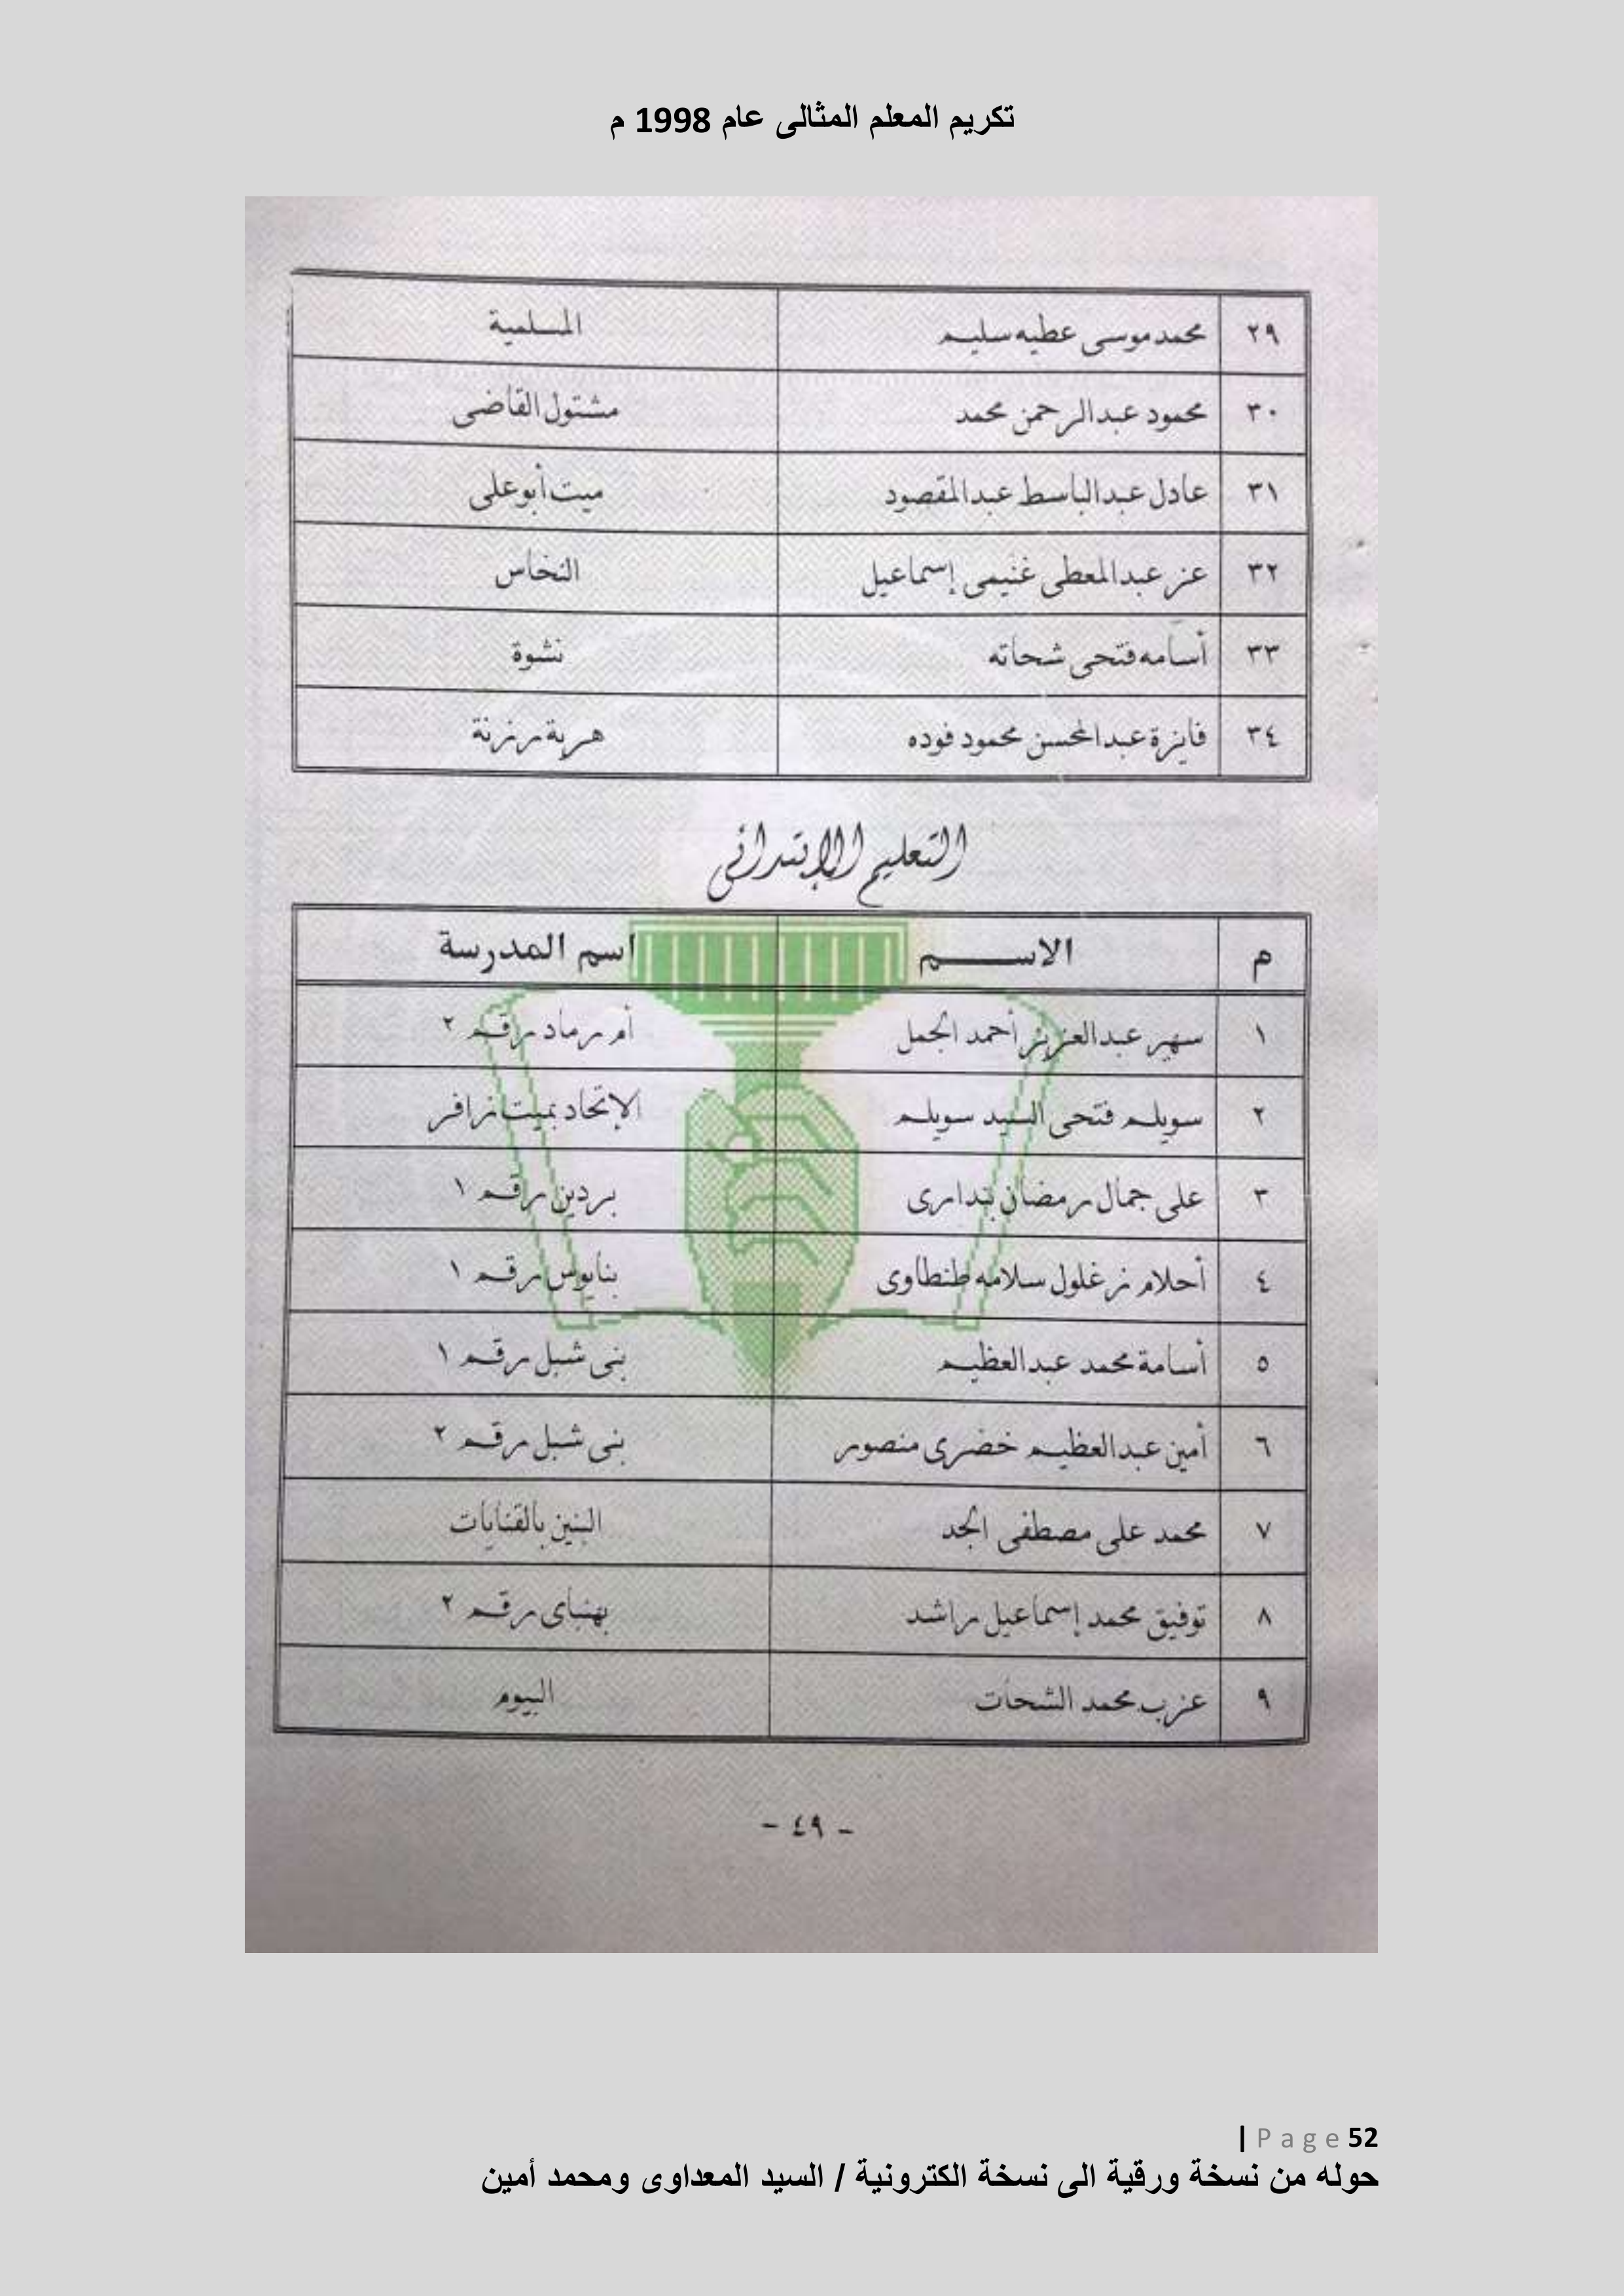 تكريم المعلم المثالى عام 1998 م
٢٩ محمد موسى عطيه سليم المسلمية
٣٠ محمود عبد الرحمن محمد مشتول القاضى
٣١ عادل عبد الباسط عبد المقصود ميت أبو على
٣٢ عز عبد المعطى غنيمى إسماعيل النخاس
٣٣ أسامه فتحى شحاته نشوة
٣٤ فايزة عبد المحسن محمود فوده هرية رزنة
التعليم الإبتدائى
م الاســـــم اسم المدرسة
١ سهير عبد العزيز أحمد الجمل أم رماد رقم ٢
٢ سويلم فتحى السيد سويلم الإتحاد بميت زافر
٣ على جمال رمضان بندارى بردين رقم ١
٤ أحلام زغلول سلامه طنطاوى بنايوس رقم ١
٥ أسامة محمد عبد العظيم بنى شبل رقم ١
٦ أمين عبد العظيم خضرى منصور بنى شبل رقم ٢
٧ محمد على مصطفى الجد البنين بالقنايات
٨ توفيق محمد إسماعيل راشد بهنباى رقم ٢
٩ عزب محمد الشحات البيوم
- ٤٩ -
| Page 52
حوله من نسخة ورقية الى نسخة الكترونية / السيد المعداوى ومحمد أمين